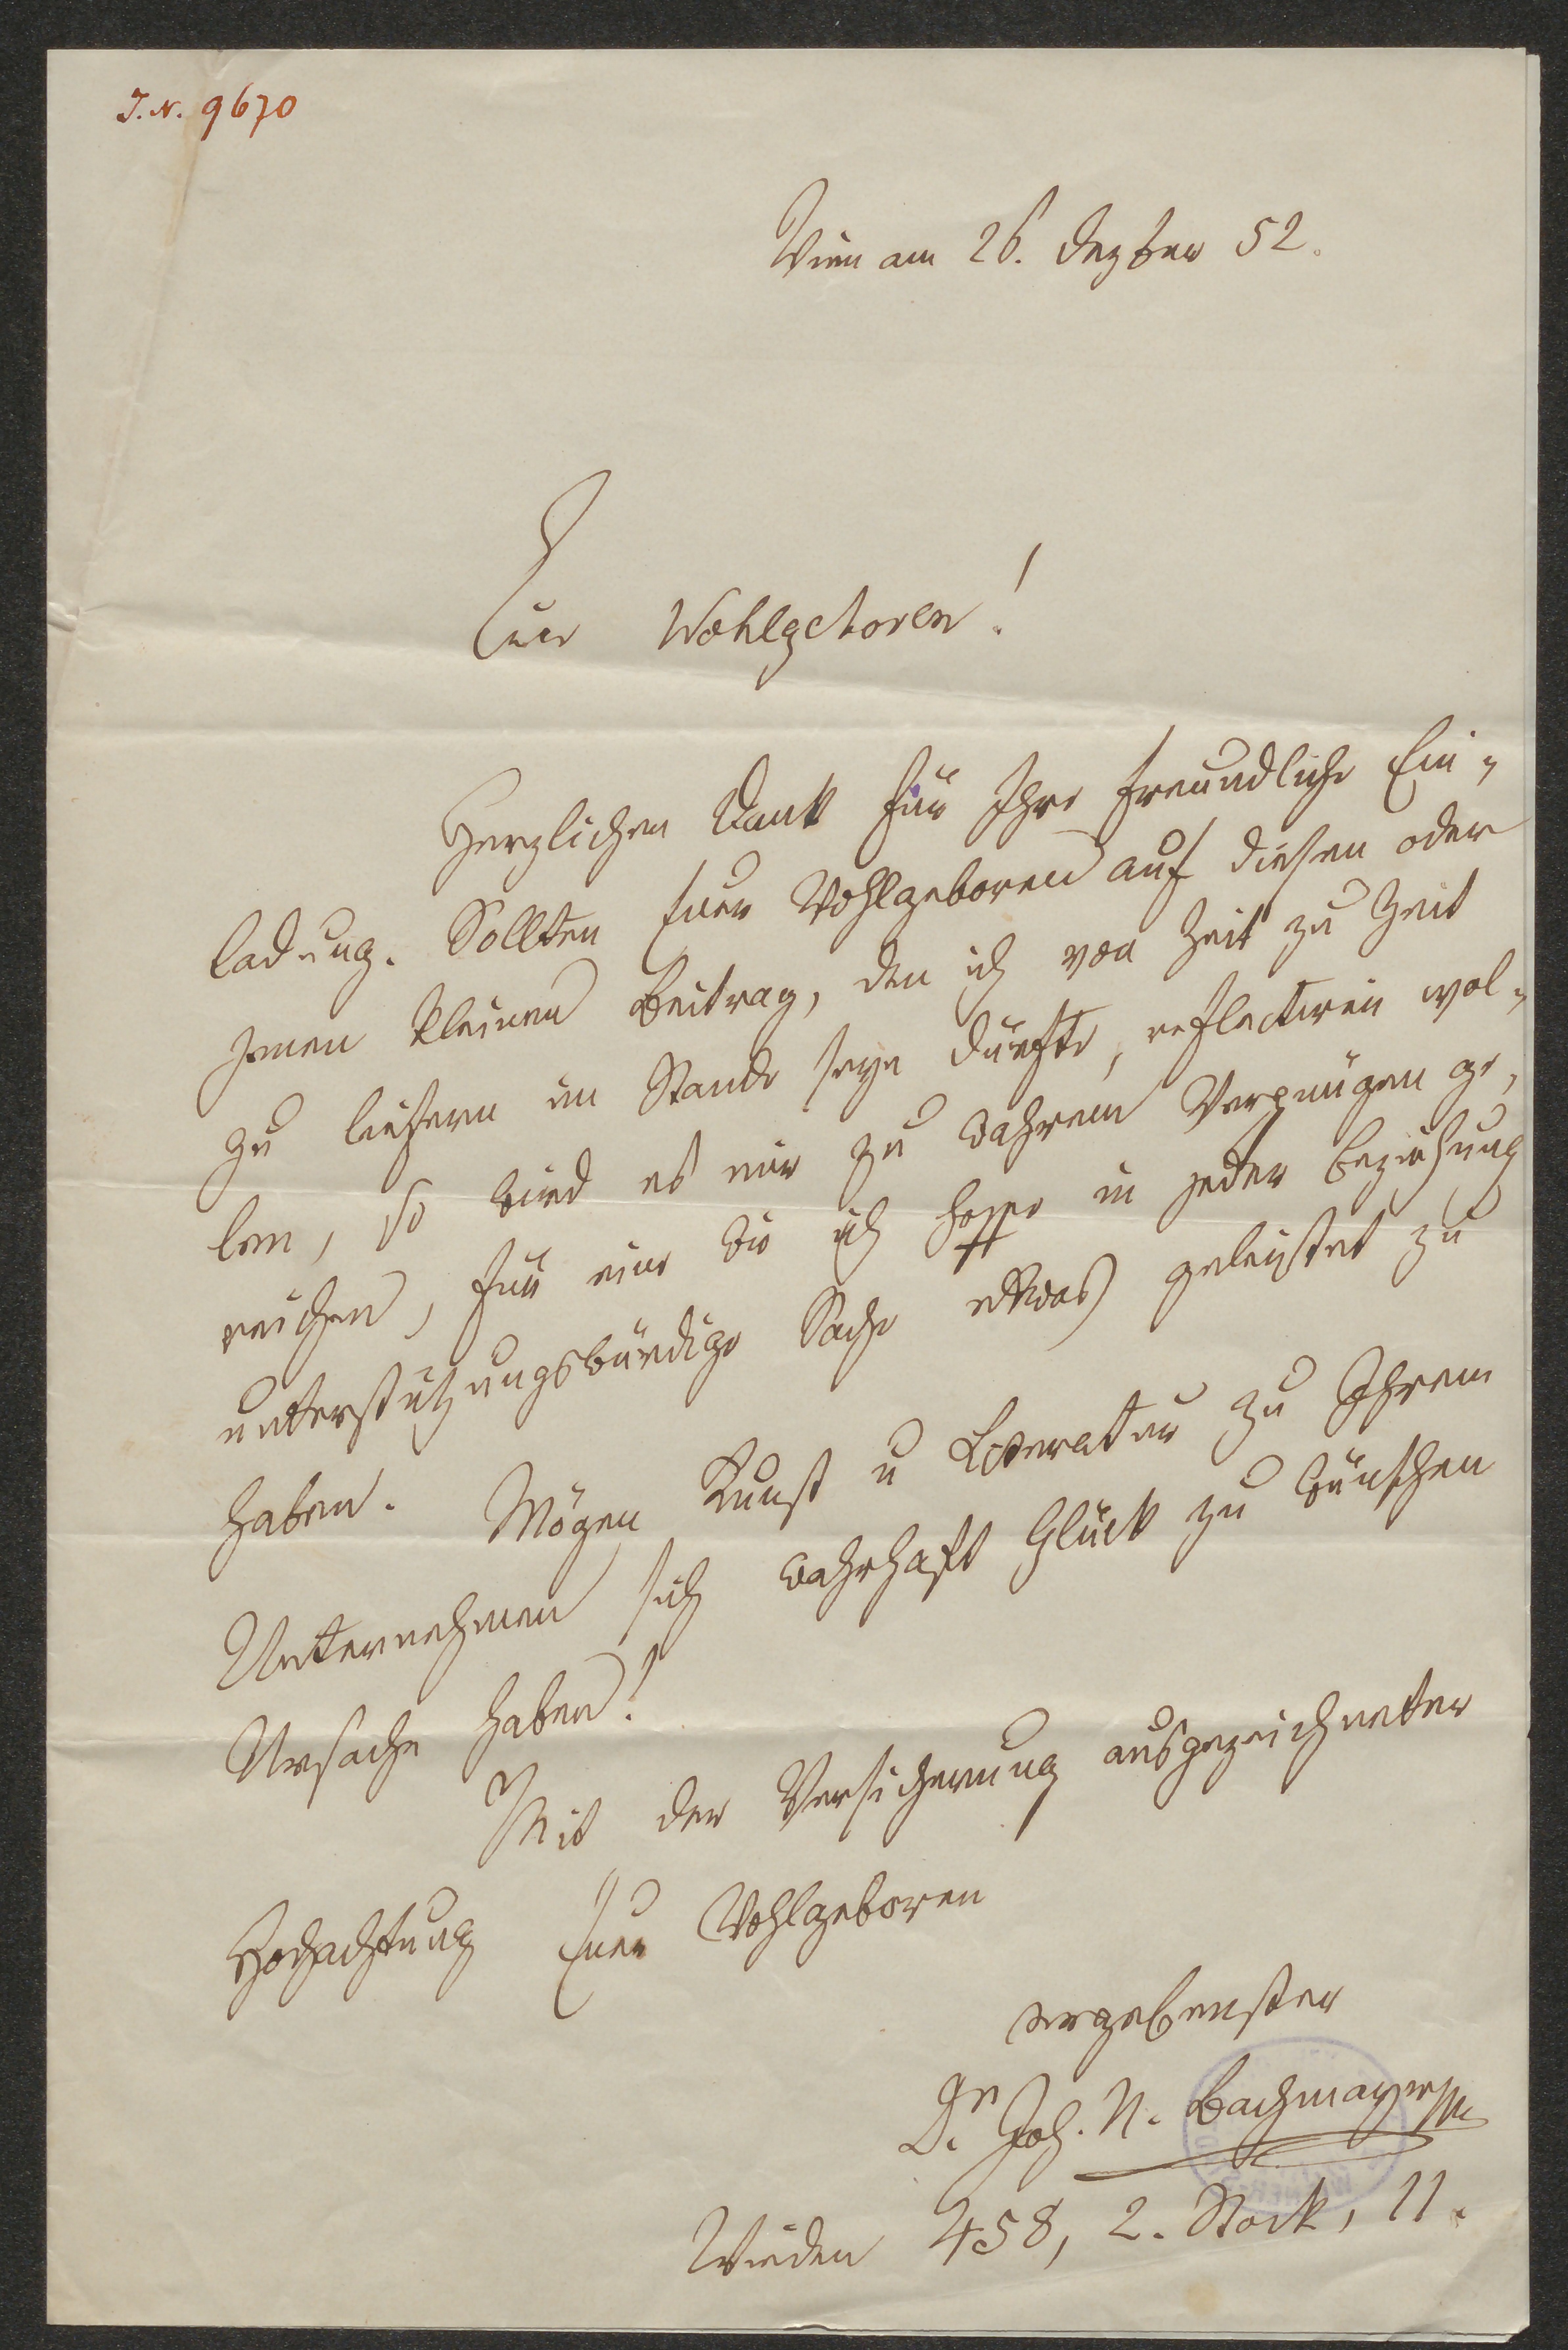 I. N. 9670
Wien am 26. Dezber 52.
Euer Wohlgeboren!
Herzlichen Dank für Ihre freundliche Ein-
ladung. Sollten Euer Wohlgeboren auf diesen oder
jenen kleinen Beitrag, den ich von Zeit zu Zeit
zu liefern im Stande seyn dürfte, reflectiren wol-
len, so wird es mir zu wahrem Vergnügen ge-
reichen, für eine wie ich hoffe in jeder Beziehung
unterstützungswürdige Sache etwas geleistet zu
haben. Mögen Kunst u Literatur zu Ihrem
Unternehmen sich wahrhaft Glück zu wünschen
Ursache haben!
Mit der Versicherung ausgezeichneter
Hochachtung Euer Wohlgeboren
ergebenster
Dr. Joh. N. Bachmayr
Wieden 458, 2. Stock, 11.